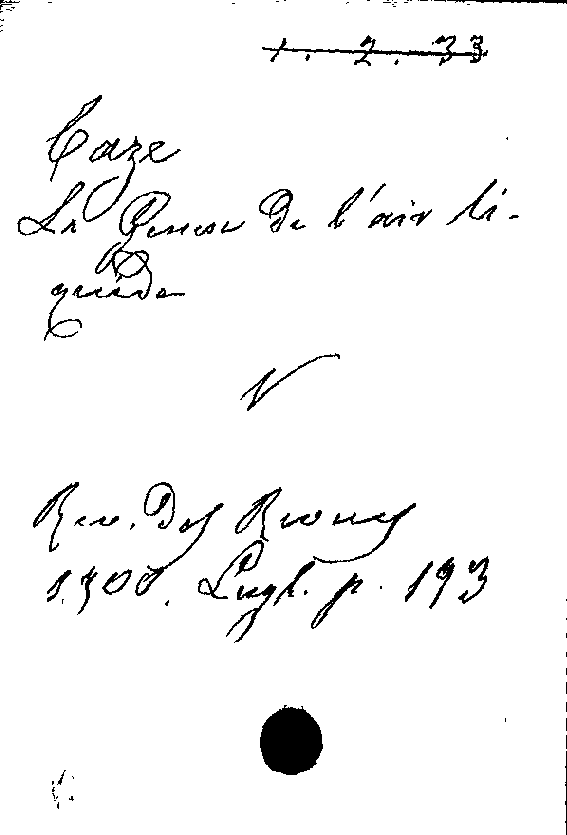 1. 2. 33
Caze
La Genese de l'air li-
quide
Rev. des Revues
1900. p. 193